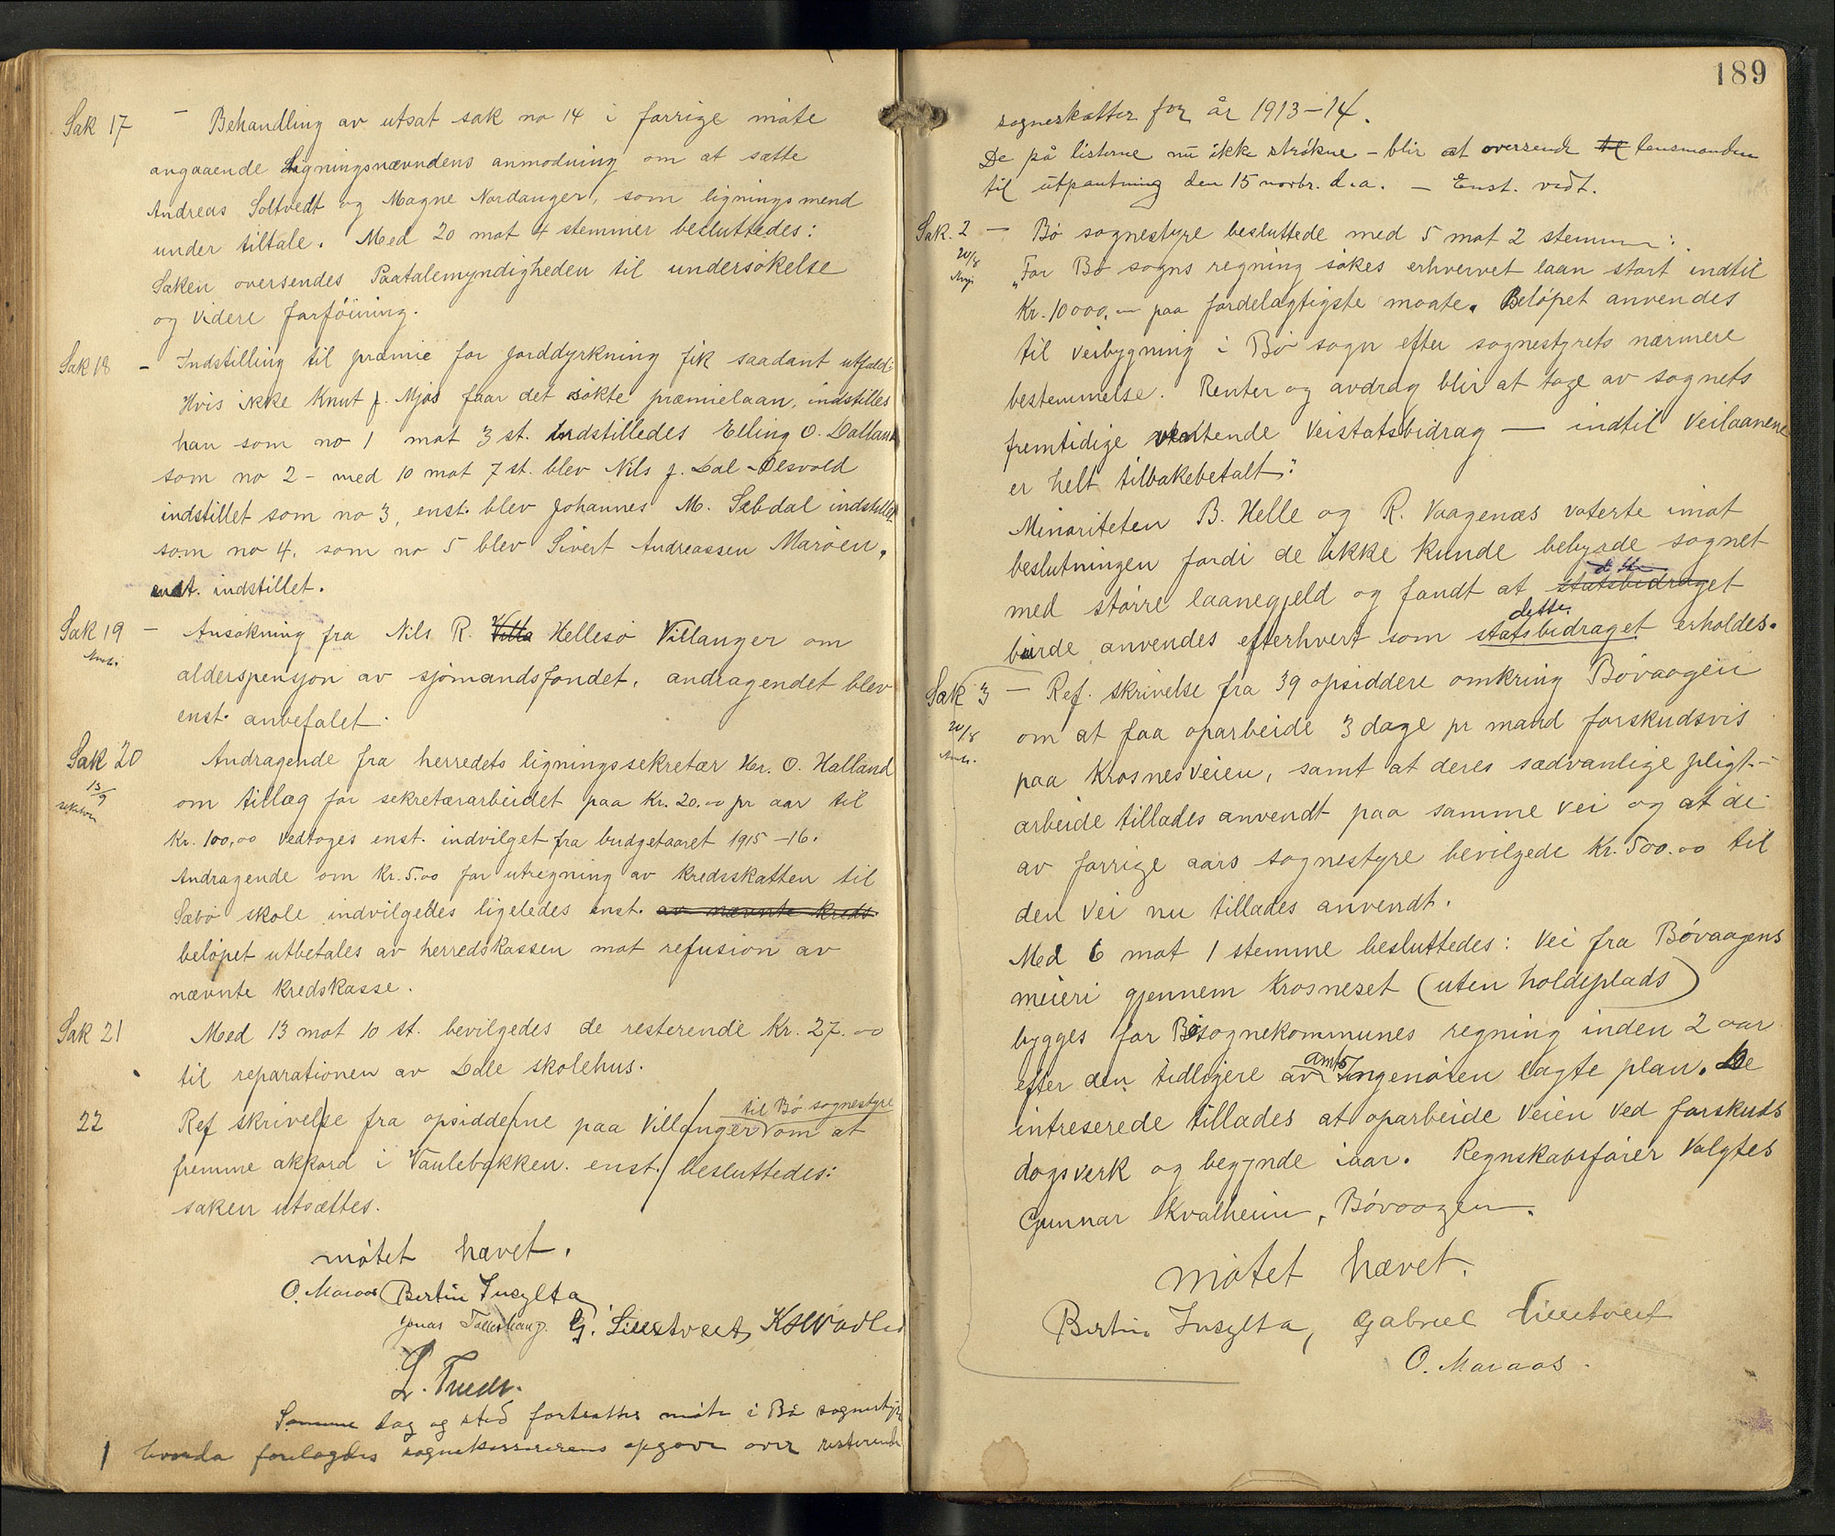 Sak 17 - Behandling av utsat sak no 14 i forrige møte
angaaende Ligningsnævndens anmodning om at sætte
Andreas Soltvedt og Magne Nordanger, som ligningsmend
under tiltale. Med 20 mot 4 stemmer besluttedes:
Saken oversendes Paatalemyndigheden til undersøkelse
og videre forføining.
Sak 18 - Indstilling til præmie for jorddyrkning fik saadant utfald:
Hvis ikke Knut J. Mjøs faar det søkte præmielaan, indstilles
han som no 1 mot 3 st. Indstilledes Elling O. Dalland
som no 2 - med 10 mot 7 st. blev Nils J. Dal-Olsvold
indstillet som no 3, enst. blev Johannes M. Sæbdal indstillet
som no 4, som no 5 blev Sivert Andreassen Marøen,
enst. indstillet.
Sak 19 - Ansøkning fra Nils R. Villa Hellesø Villanger om
alderspensjon av sjømandsfondet, andragendet blev
enst. anbefalet.
Sak 20 Andragende fra herredets ligningssekretær Hr. O. Halland
13/9
om tillæg for sekretærarbeidet paa Kr. 20.00 pr aar til
Kr. 100,00 vedtoges enst. indvilget fra budgetaaret 1915-16.
Andragende om Kr. 5.00 for utregning av kredsskatten til
Sæbø skole indvilgedes ligeledes enst. av nævnte kreds
beløpet utbetales av herredskassen mot refusion av
nævnte kredskasse.
Sak 21 Med 13 mot 10 st. bevilgedes de resterende Kr. 27.00
til reparationen av Dale skolehus.
til Bø sognestyre
22 Ref skrivelse fra opsidderne paa Villanger om at
fremme akkord i Vaulebakken. enst. besluttedes:
saken utsættes.
møtet hævet.
O. Maraas Bertin Insylta
G. Lilletvedt
Samme dag og sted fortsattes møte i Bø sognestyre
1 hvorda forelagdes sognekassererens opgave over resterende
189
sogneskatter for år 1913-14.
De på listerne nu ikke strøkne - blir at oversende til lensmanden
til utpantning den 15 novbr. d.a. - Enst. vedt.
Sak. 2 - Bø sognestyre besluttede med 5 mot 2 stemmer:
20/8
"For Bø sogns regning søkes erhvervet laan stort indtil
Kr. 10000.00 paa fordelagtigste maate. Beløpet anvendes
til veibygning i Bø sogn efter sognestyrets nærmere
bestemmelse. Renter og avdrag blir at tage av sognets
fremtidige ventende Veistatsbidrag - indtil Veilaanene
er helt tilbakebetalt."
Minoriteten B. Helle og R. Vaagenæs voterte imot
beslutningen fordi de ikke kunde bebyrde sognet
med større laanegjeld og fandt at statsbidraget
dette
burde anvendes efterhvert som statsbidraget erholdes.
Sak 3 - Ref. skrivelse fra 39 opsiddere omkring Bøvaagen
20/8
om at faa oparbeide 3 dage pr mand forskudsvis
paa Krosnesveien, samt at deres sædvanlige pligt-
arbeide tillades anvendt paa samme vei og at de
av forrige aars sognestyre bevilgede Kr. 500.00 til
den vei nu tillades anvendt.
Med 6 mot 1 stemme besluttedes: Vei fra Bøvaagens
meieri gjennem Krosneset (uten holdeplads)
bygges for Bø sognekommunes regning inden 2 aar
amts
efter den tidligere av Ingeniøren lagte plan. De
intreserede tillades at oparbeide veien ved forskuds
dagsverk og begynde iaar. Regnskabsfører valgtes
Gunnar Kvalheim, Bøvaagen.
Møtet hævet.
Bertin Insylta, Gabriel Lilletvedt
O. Maraas.